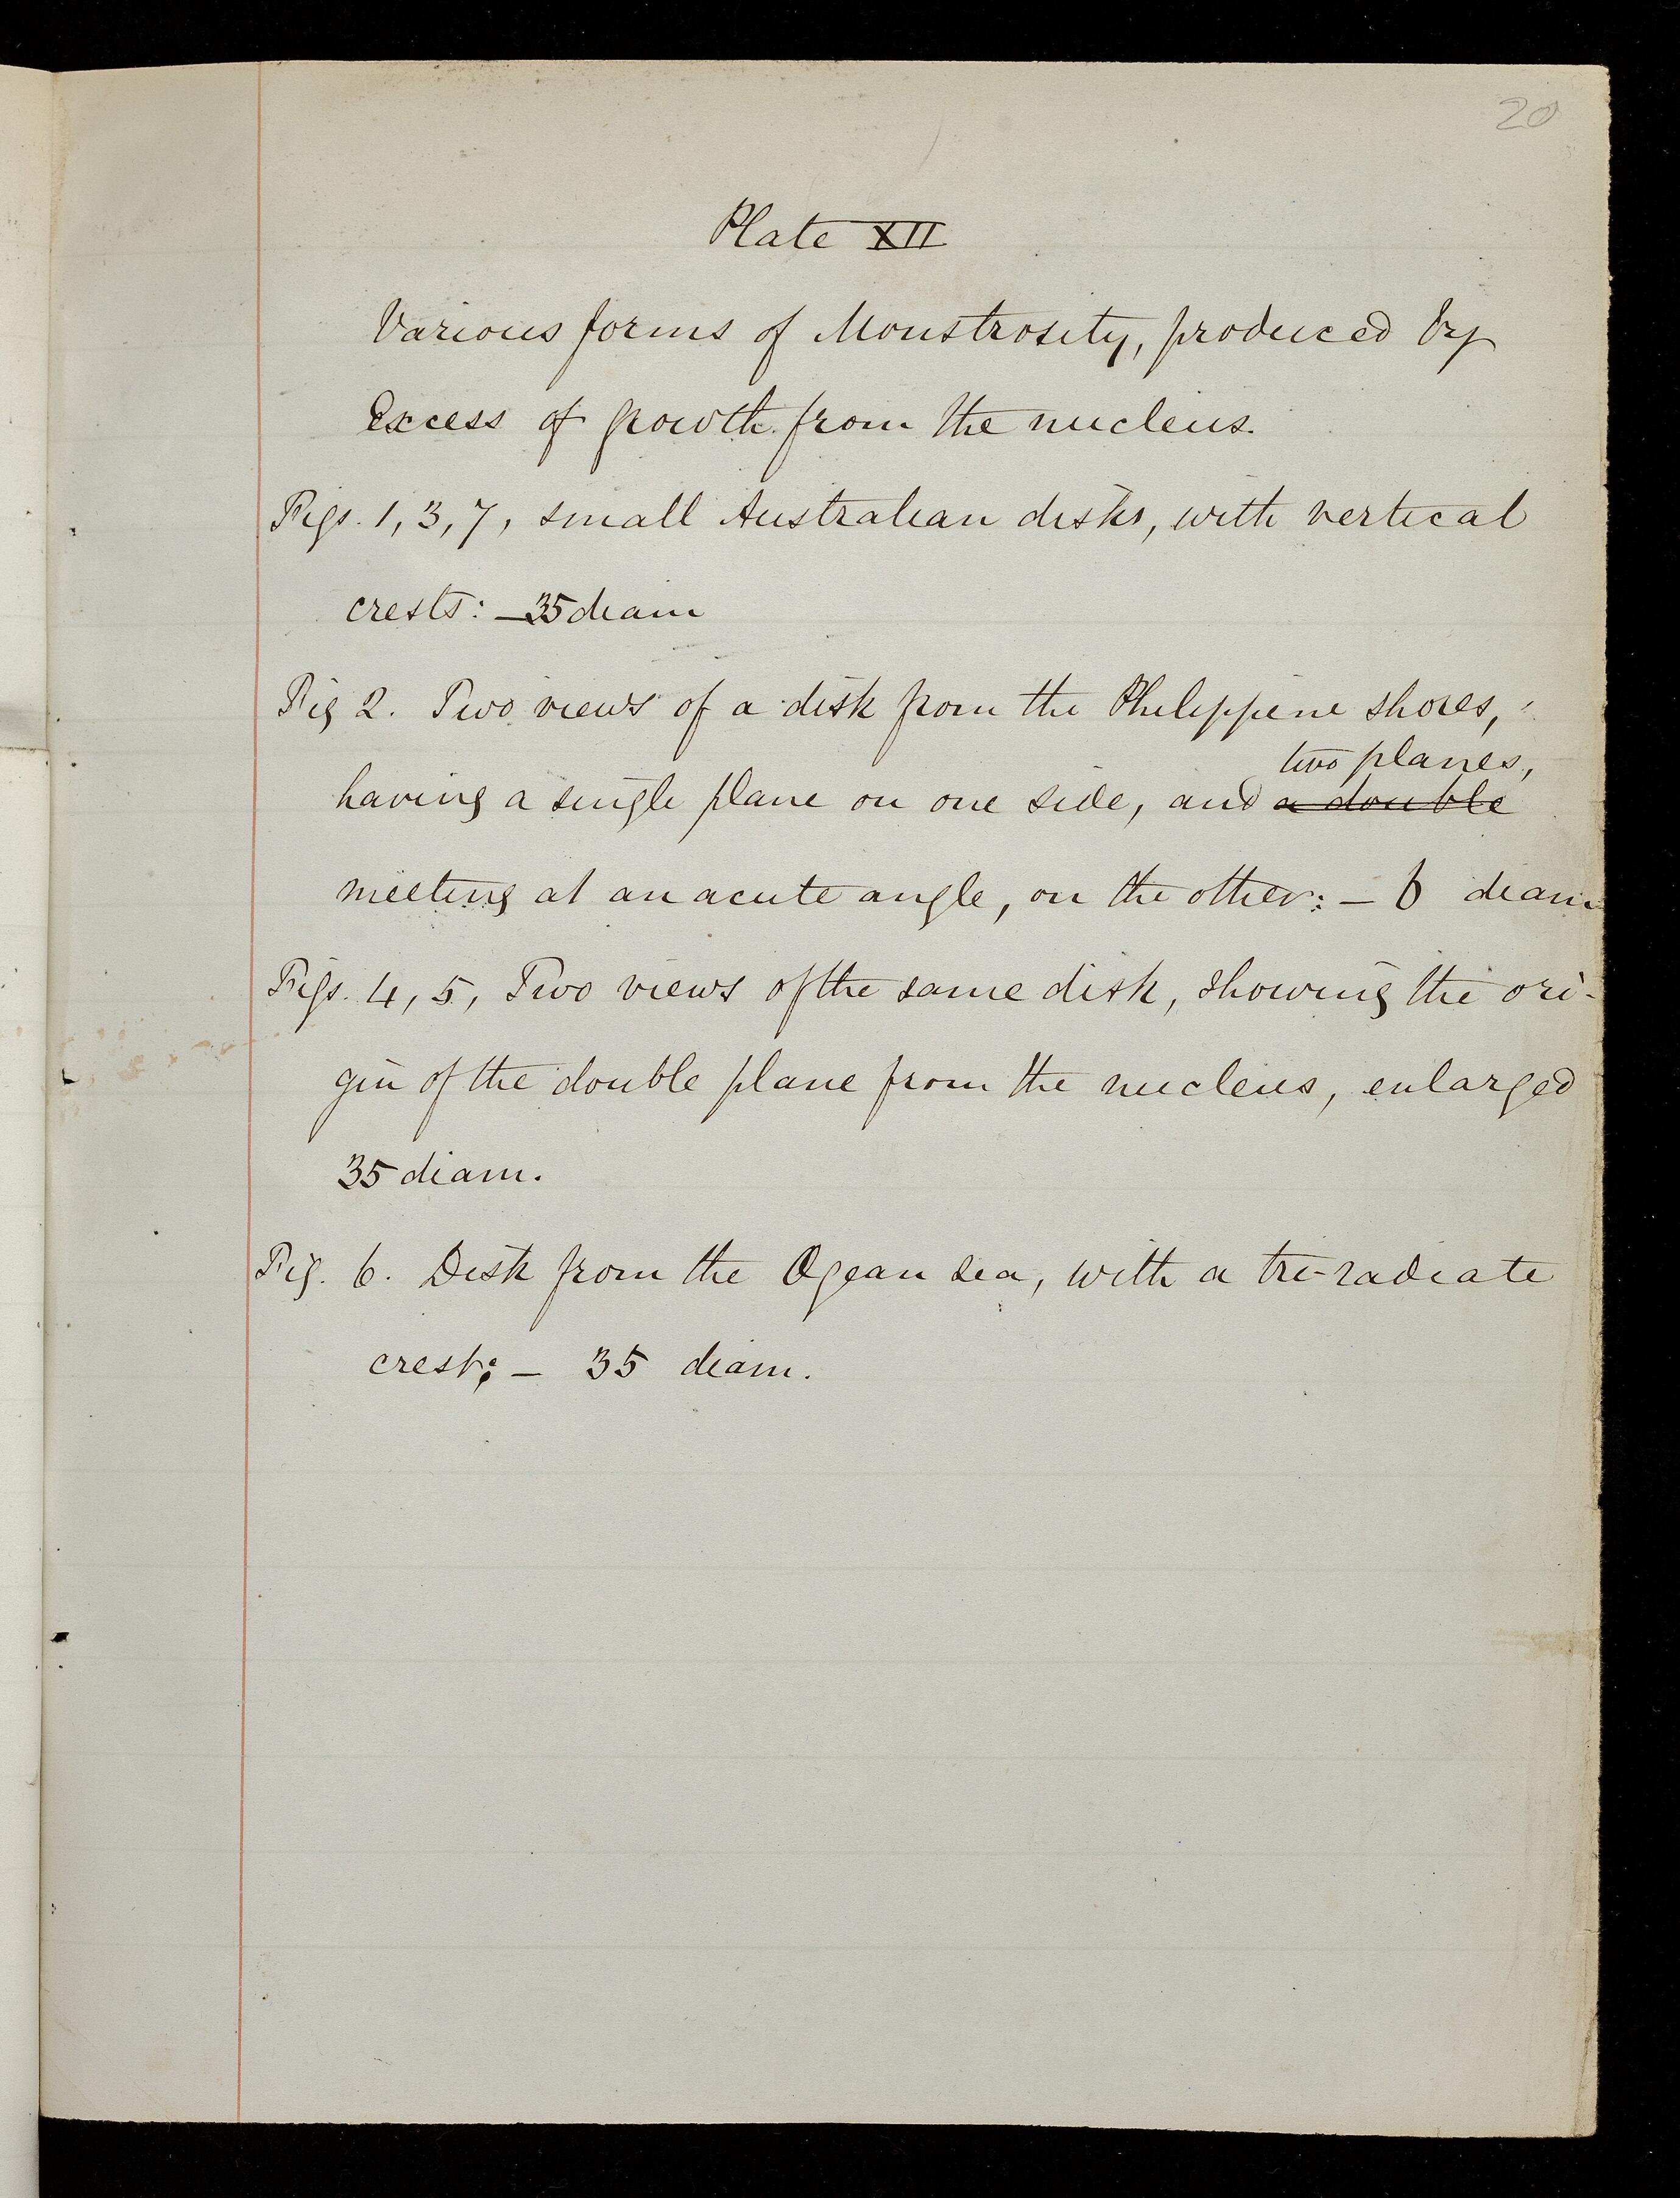 20
Plate XII
Various forms of Monstrosity, produced by
Excess of growth from the nucleus.
Figs. 1, 3, 7, small Australian disks, with vertical
crests: — 35 diam
Fig 2. Two views of a disk from the Philippine shores,
two planes,
having a single plane on one side, and a double
meeting at an acute angle, on the other: — 6 diam
Figs. 4, 5, Two views of the same disk, showing the ori-
gin of the double plane from the nucleus, enlarged
35 diam.
Fig. 6. Disk from the Ægean sea, with a tri-radiate
crest; — 35 diam.